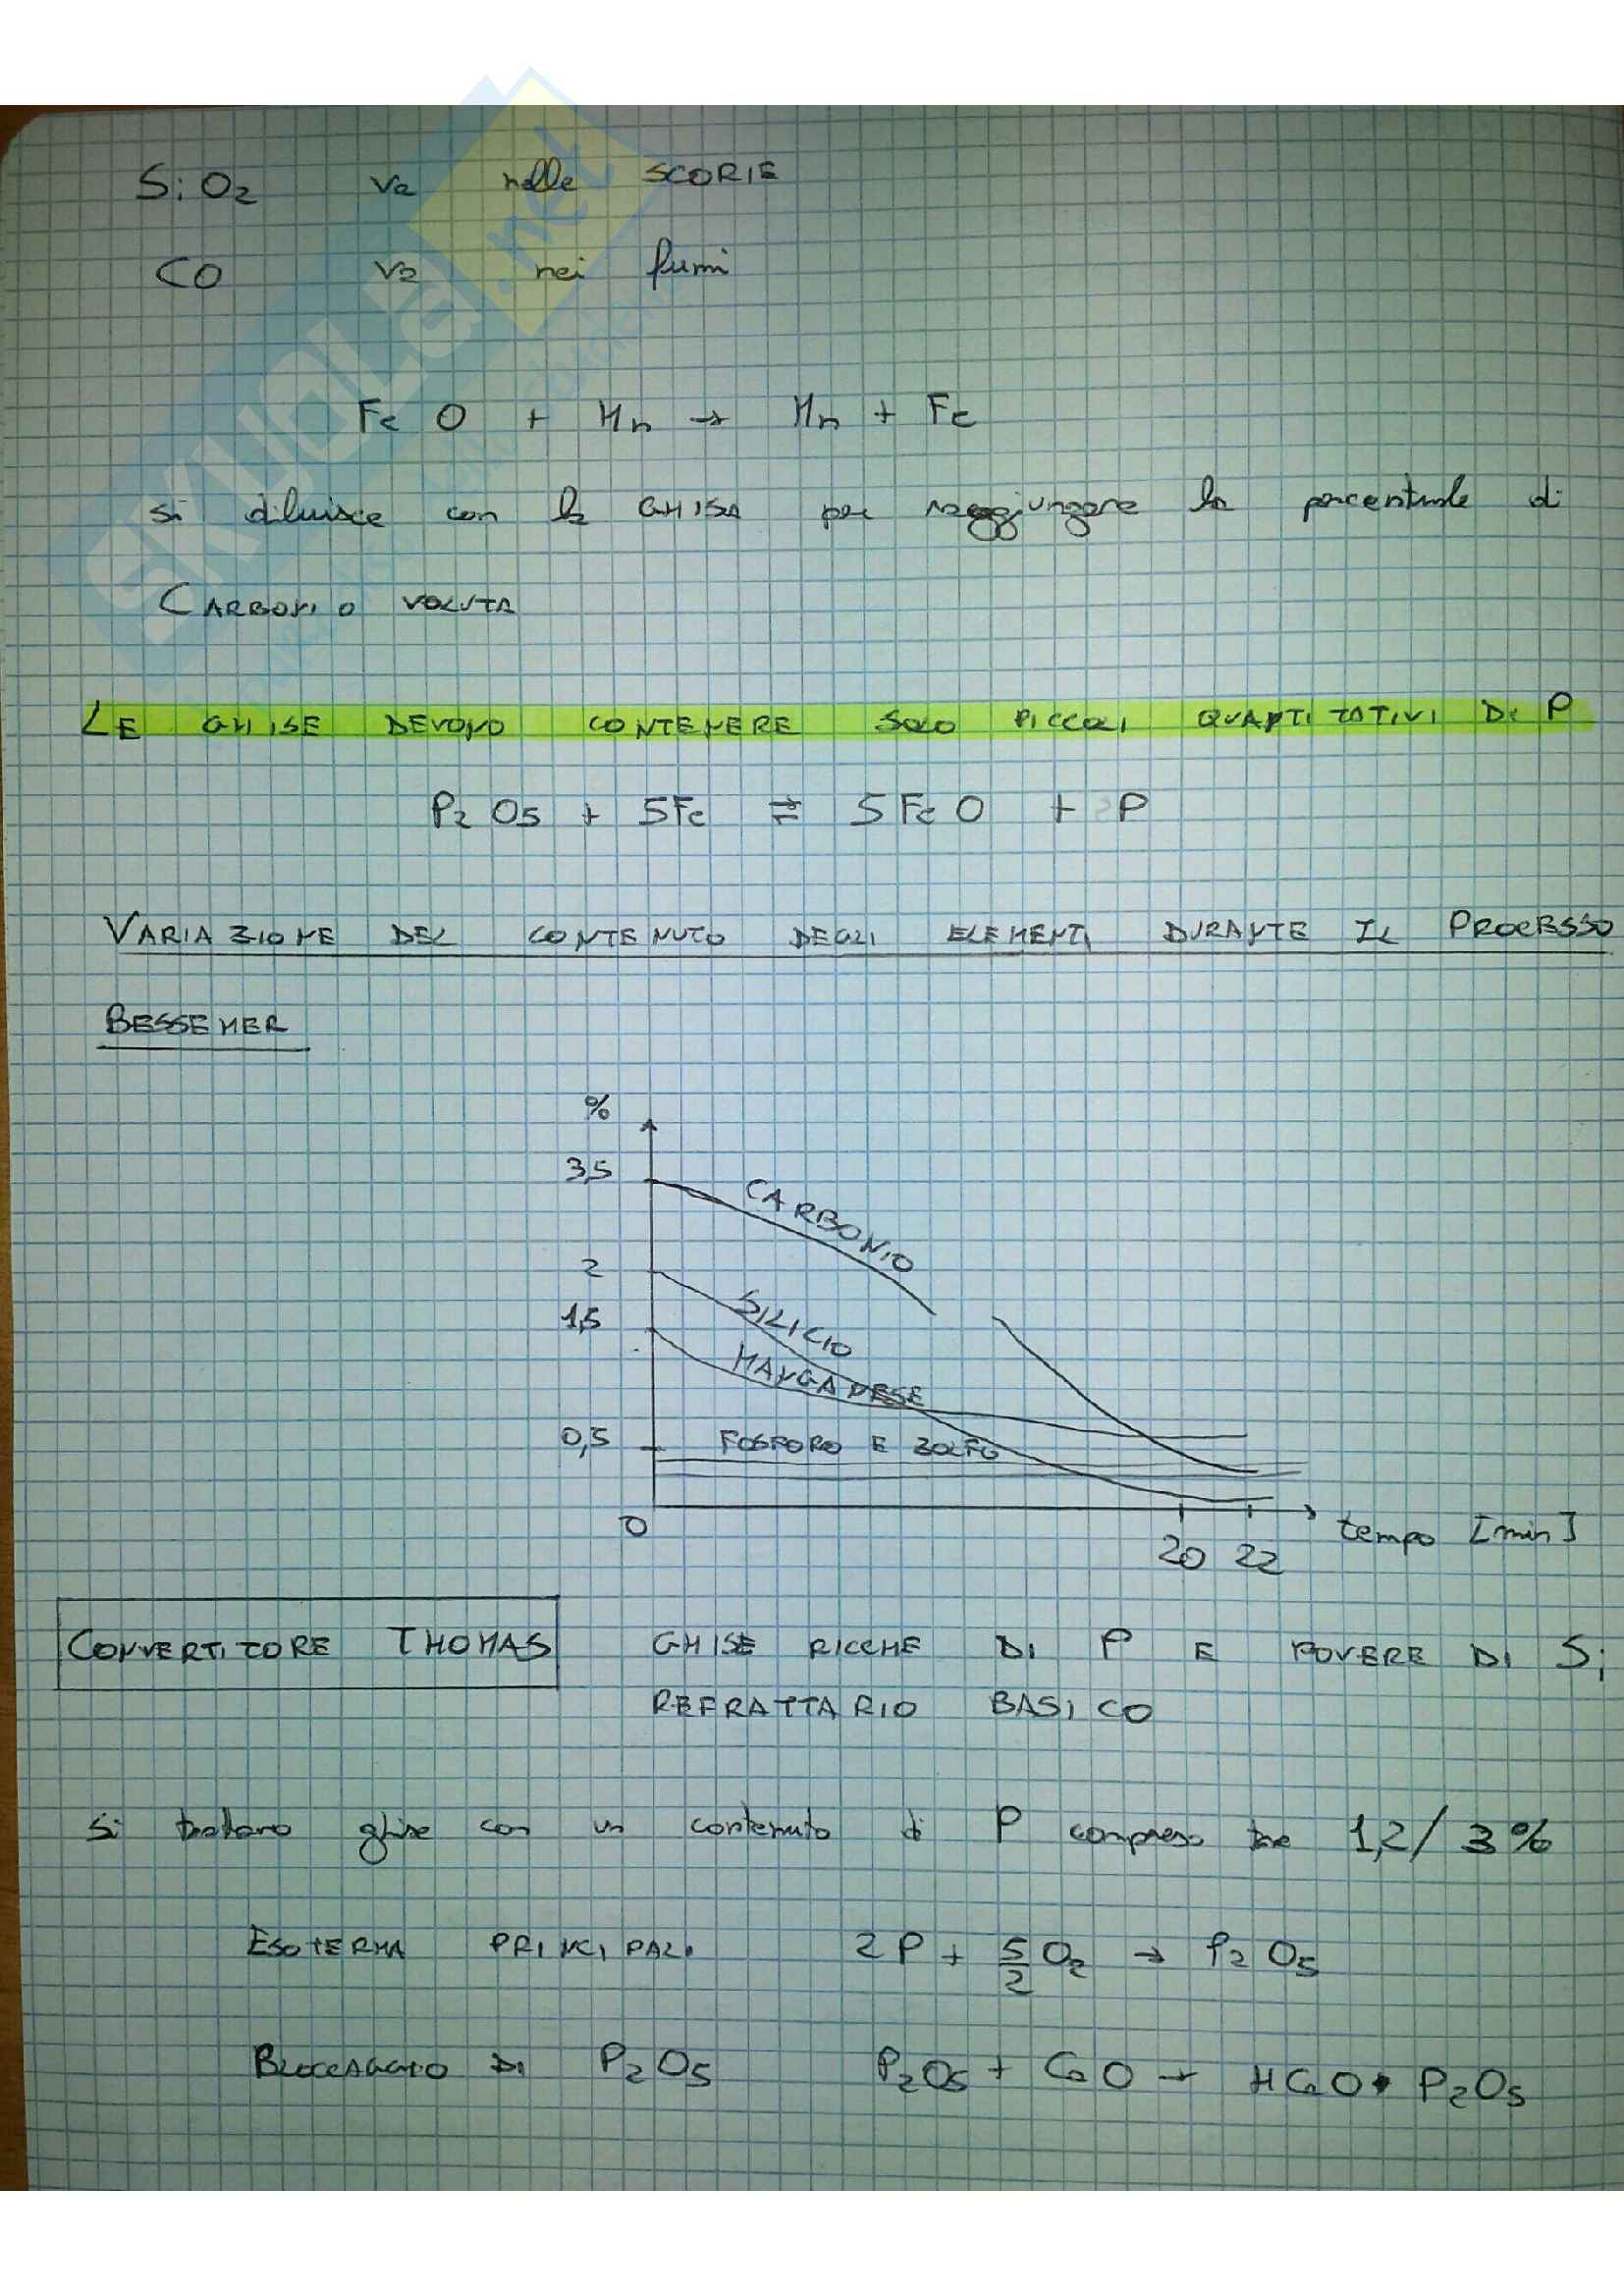 SiO2 va nelle SCORIE
CO va nei fumi
FeO + Mn → Mn + Fe
si diluisce con la GHISA per raggiungere la percentuale di
CARBONIO VOLUTA
LE GHISE DEVONO CONTENERE SOLO PICCOLI QUANTITATIVI DI P
P2O5 + 5Fe ⇌ 5FeO + 2P
VARIAZIONE DEL CONTENUTO DEGLI ELEMENTI DURANTE IL PROCESSO
BESSEMER
%
3,5
CARBONIO
2
SILICIO
1,5
MANGANESE
0,5
FOSFORO E ZOLFO
0
20 22
tempo [min]
CONVERTITORE THOMAS GHISE RICCHE DI P E POVERE DI Si
REFRATTARIO BASICO
Si trattano ghise con un contenuto di P compreso tra 1,2/3%
ESOTERMA PRINCIPALE 2P + 5/2 O2 → P2O5
BLOCCAGGIO DI P2O5 P2O5 + CaO → HCaO • P2O5
SKUOLa.net